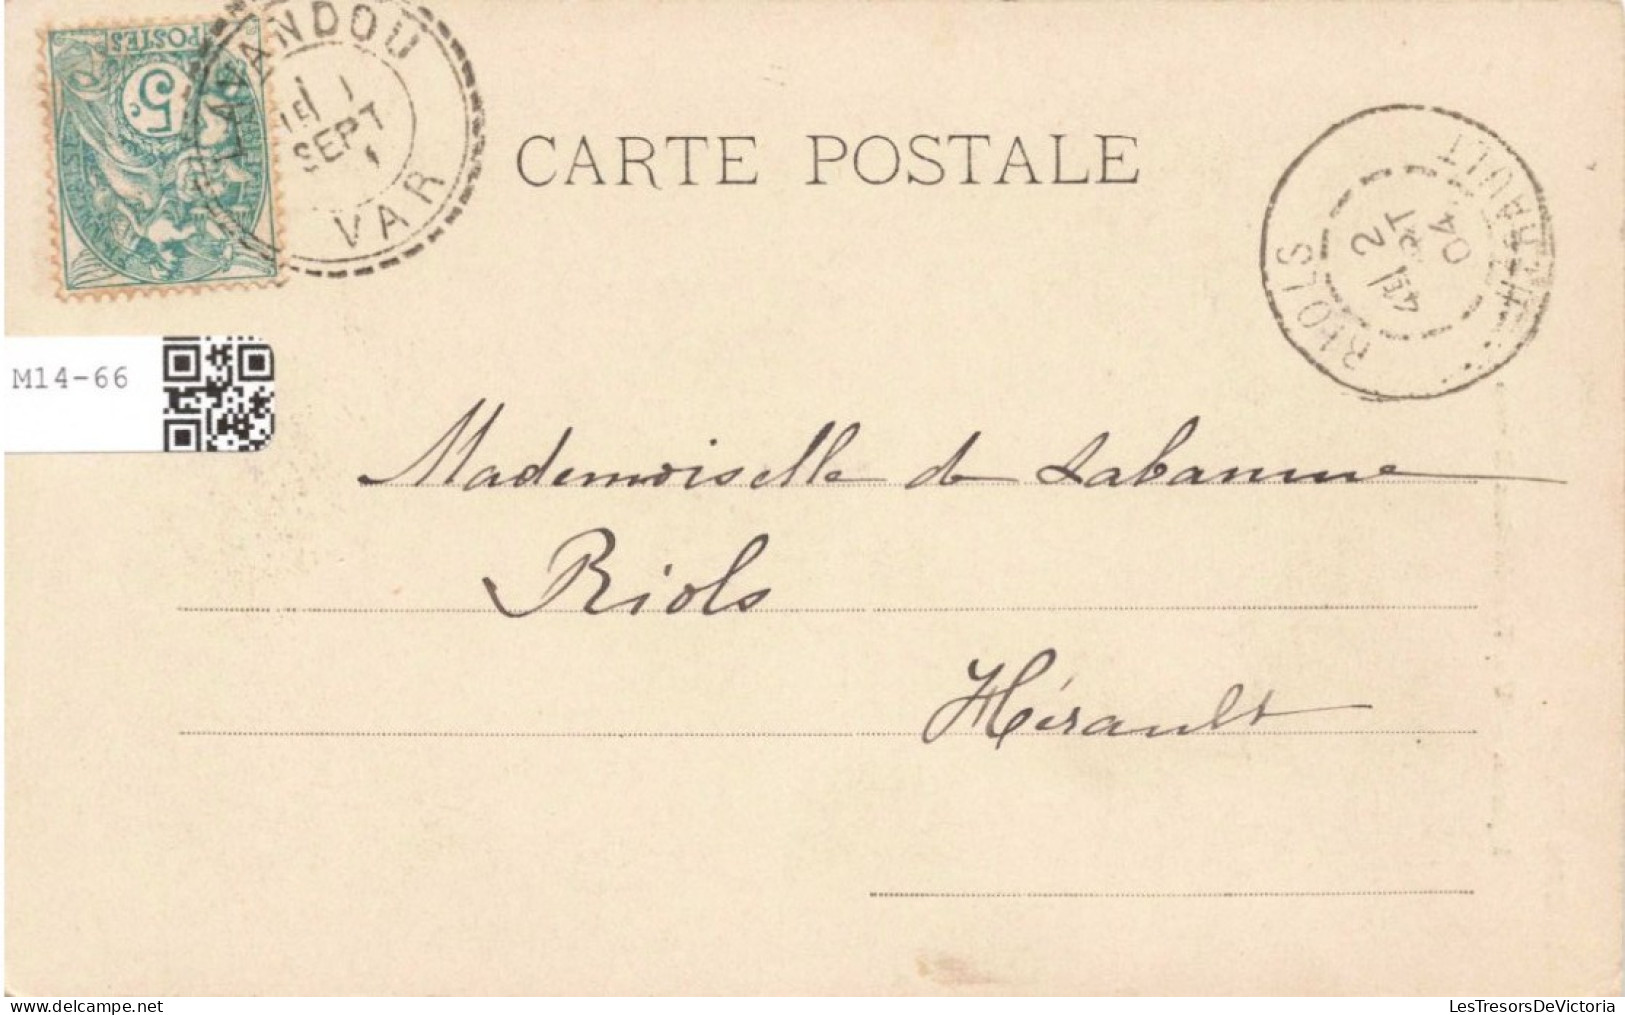 POSTES
5c
LAVANDOU
1E
SEPT
VAR
CARTE POSTALE
RIOLS
HERAULT
4E 2
04
M14-66
Mademoiselle de
Riols
Hérault
delcampe.net
LesTresorsDeVictoria